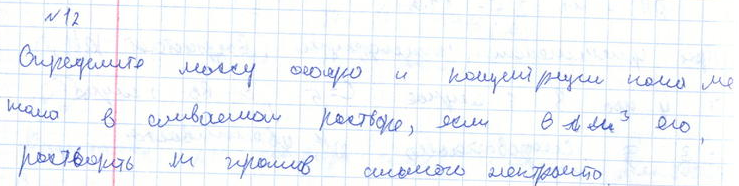 №12
Определите массу осадка и концентрации иона ме
талла в сливаемом растворе, если в 1 м³ его,
растворить m граммов сильного электролита